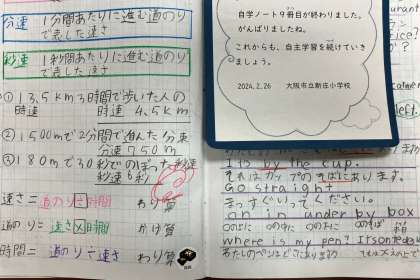 分速 1分間あたりに進む道のり
で表した速さ
秒速 1秒間あたりに進む道のり
で表した速さ
① 13.5km 3時間で歩いた人の
時速 時速 4.5km
② 1500mで2分間で進んだ分速
分速750m
③ 180mで30秒でのぼった秒速
秒速6秒
速さ= 道のり÷時間 わり算
道のり= 速さ×時間 かけ算
時間= 道のり÷速さ わり算
自学ノート9冊目が終わりました。
がんばりましたね。
これからも、自主学習を続けていき
ましょう。
2024.2.26 大阪市立新庄小学校
It is by the cup.
それはカップのそばにあります。
Go straight
まっすぐいってください。
on in under by box
〇の上に 〇の中に 〇の下に 〇のそば 箱
where is my pen? It's on
わたしのペンはどこにありますか